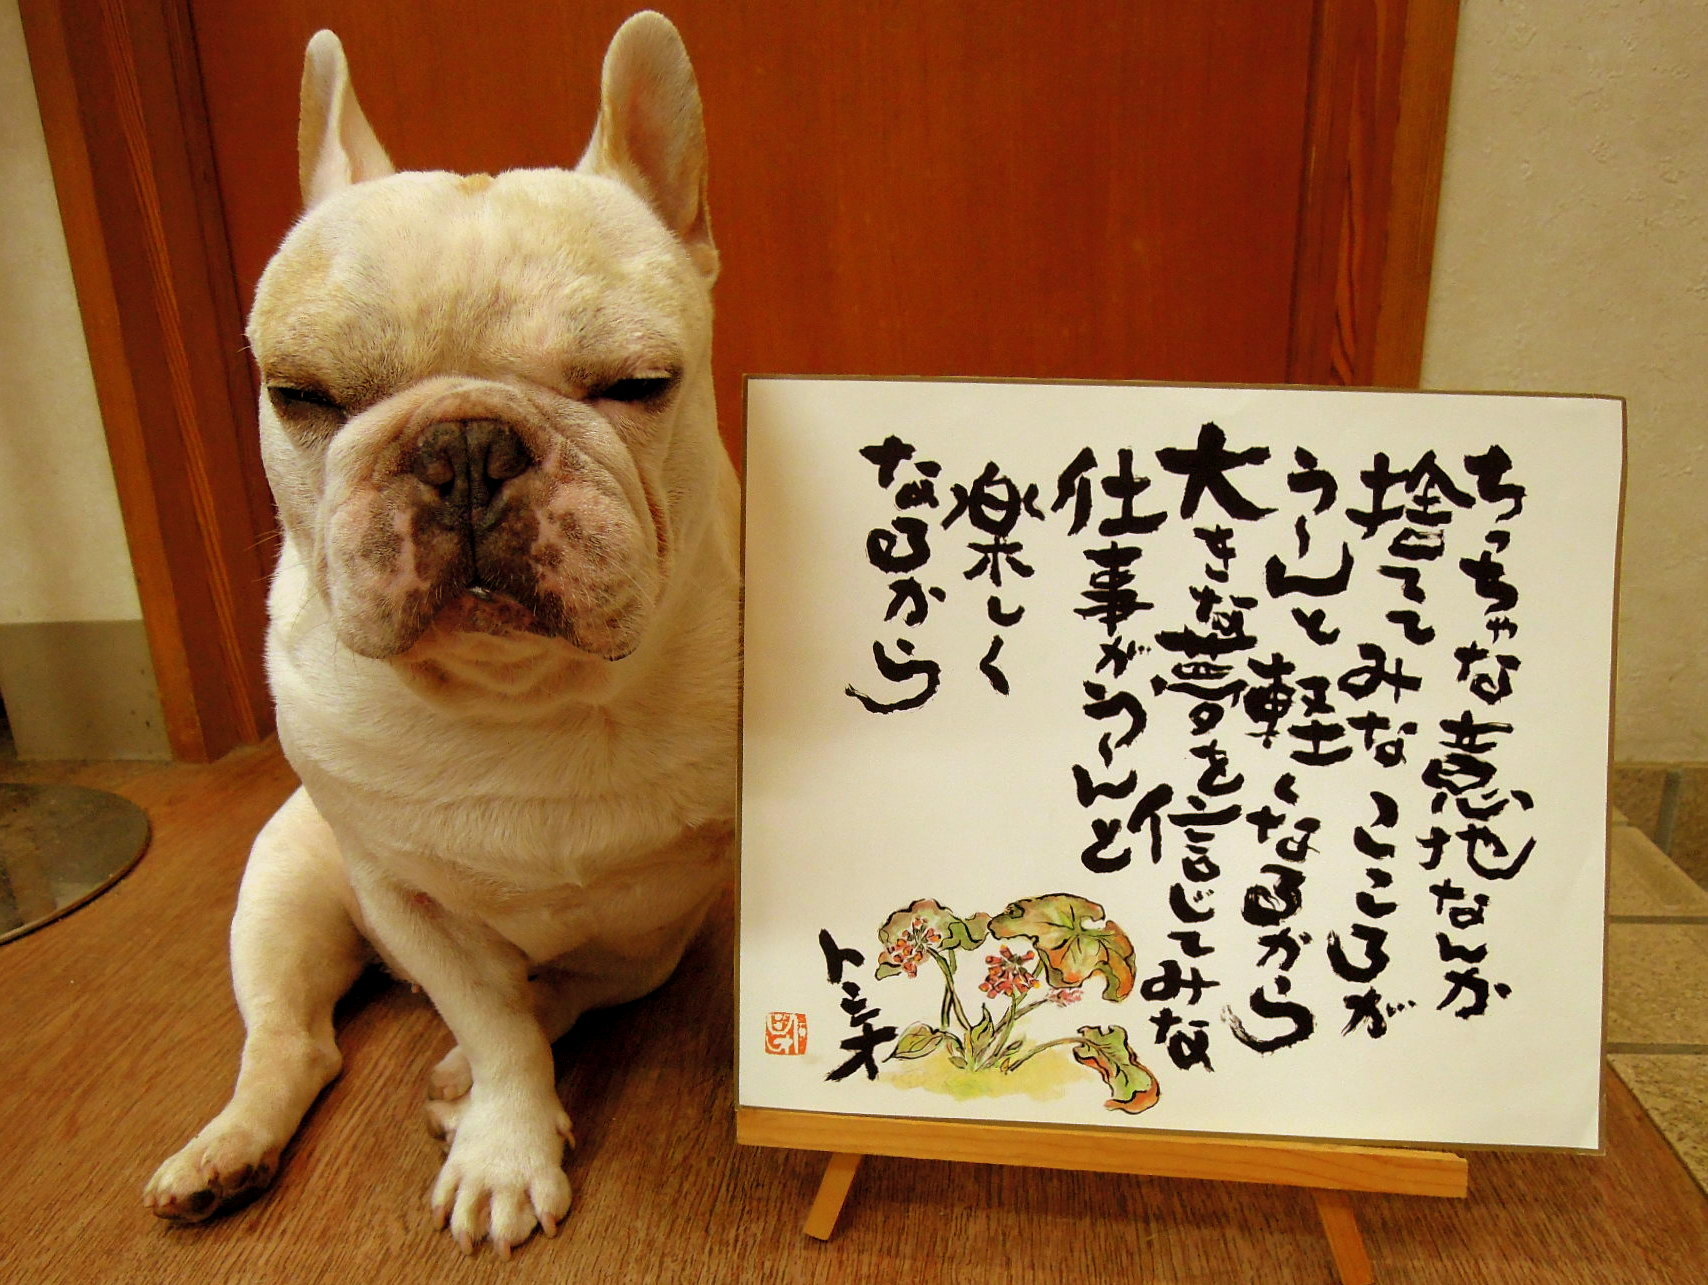 ちっちゃな意地なんか
捨ててみな こころが
う〜んと軽くなるから
大きな夢を信じてみな
仕事がう〜んと
楽しく
なるから
トシオ